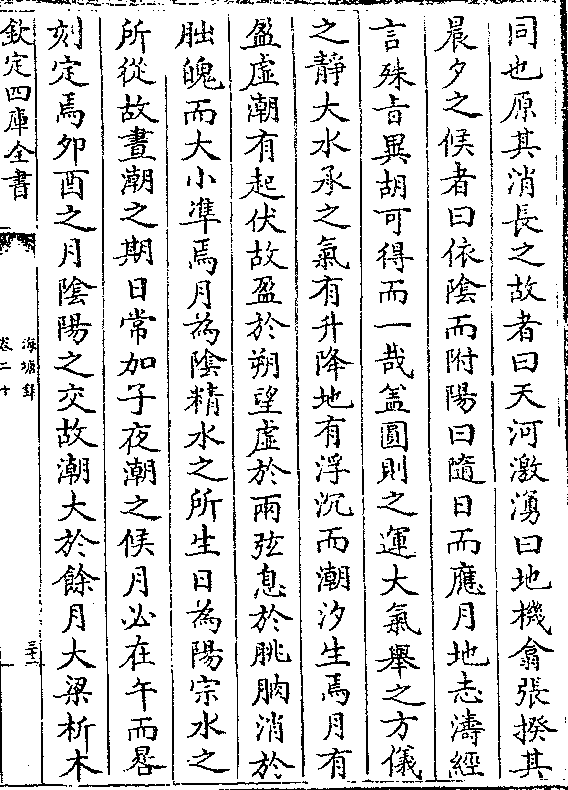 同也原其消長之故者曰天河激湧曰地機翕張揆其
晨夕之候者曰依陰而附陽曰隨日而應月地志濤經
言殊旨異胡可得而一哉盖圓則之運大氣舉之方儀
之靜大水承之氣有升降地有浮沉而潮汐生焉月有
盈虚潮有起伏故盈於朔望虚於兩弦息於朓朒消於
朏魄而大小準焉月為陰精水之所生日為陽宗水之
所從故晝潮之期日常加子夜潮之候月必在午而晷
刻定焉夘酉之月陰陽之交故潮大於餘月大梁析木
欽定四庫全書
海塘録
卷二十